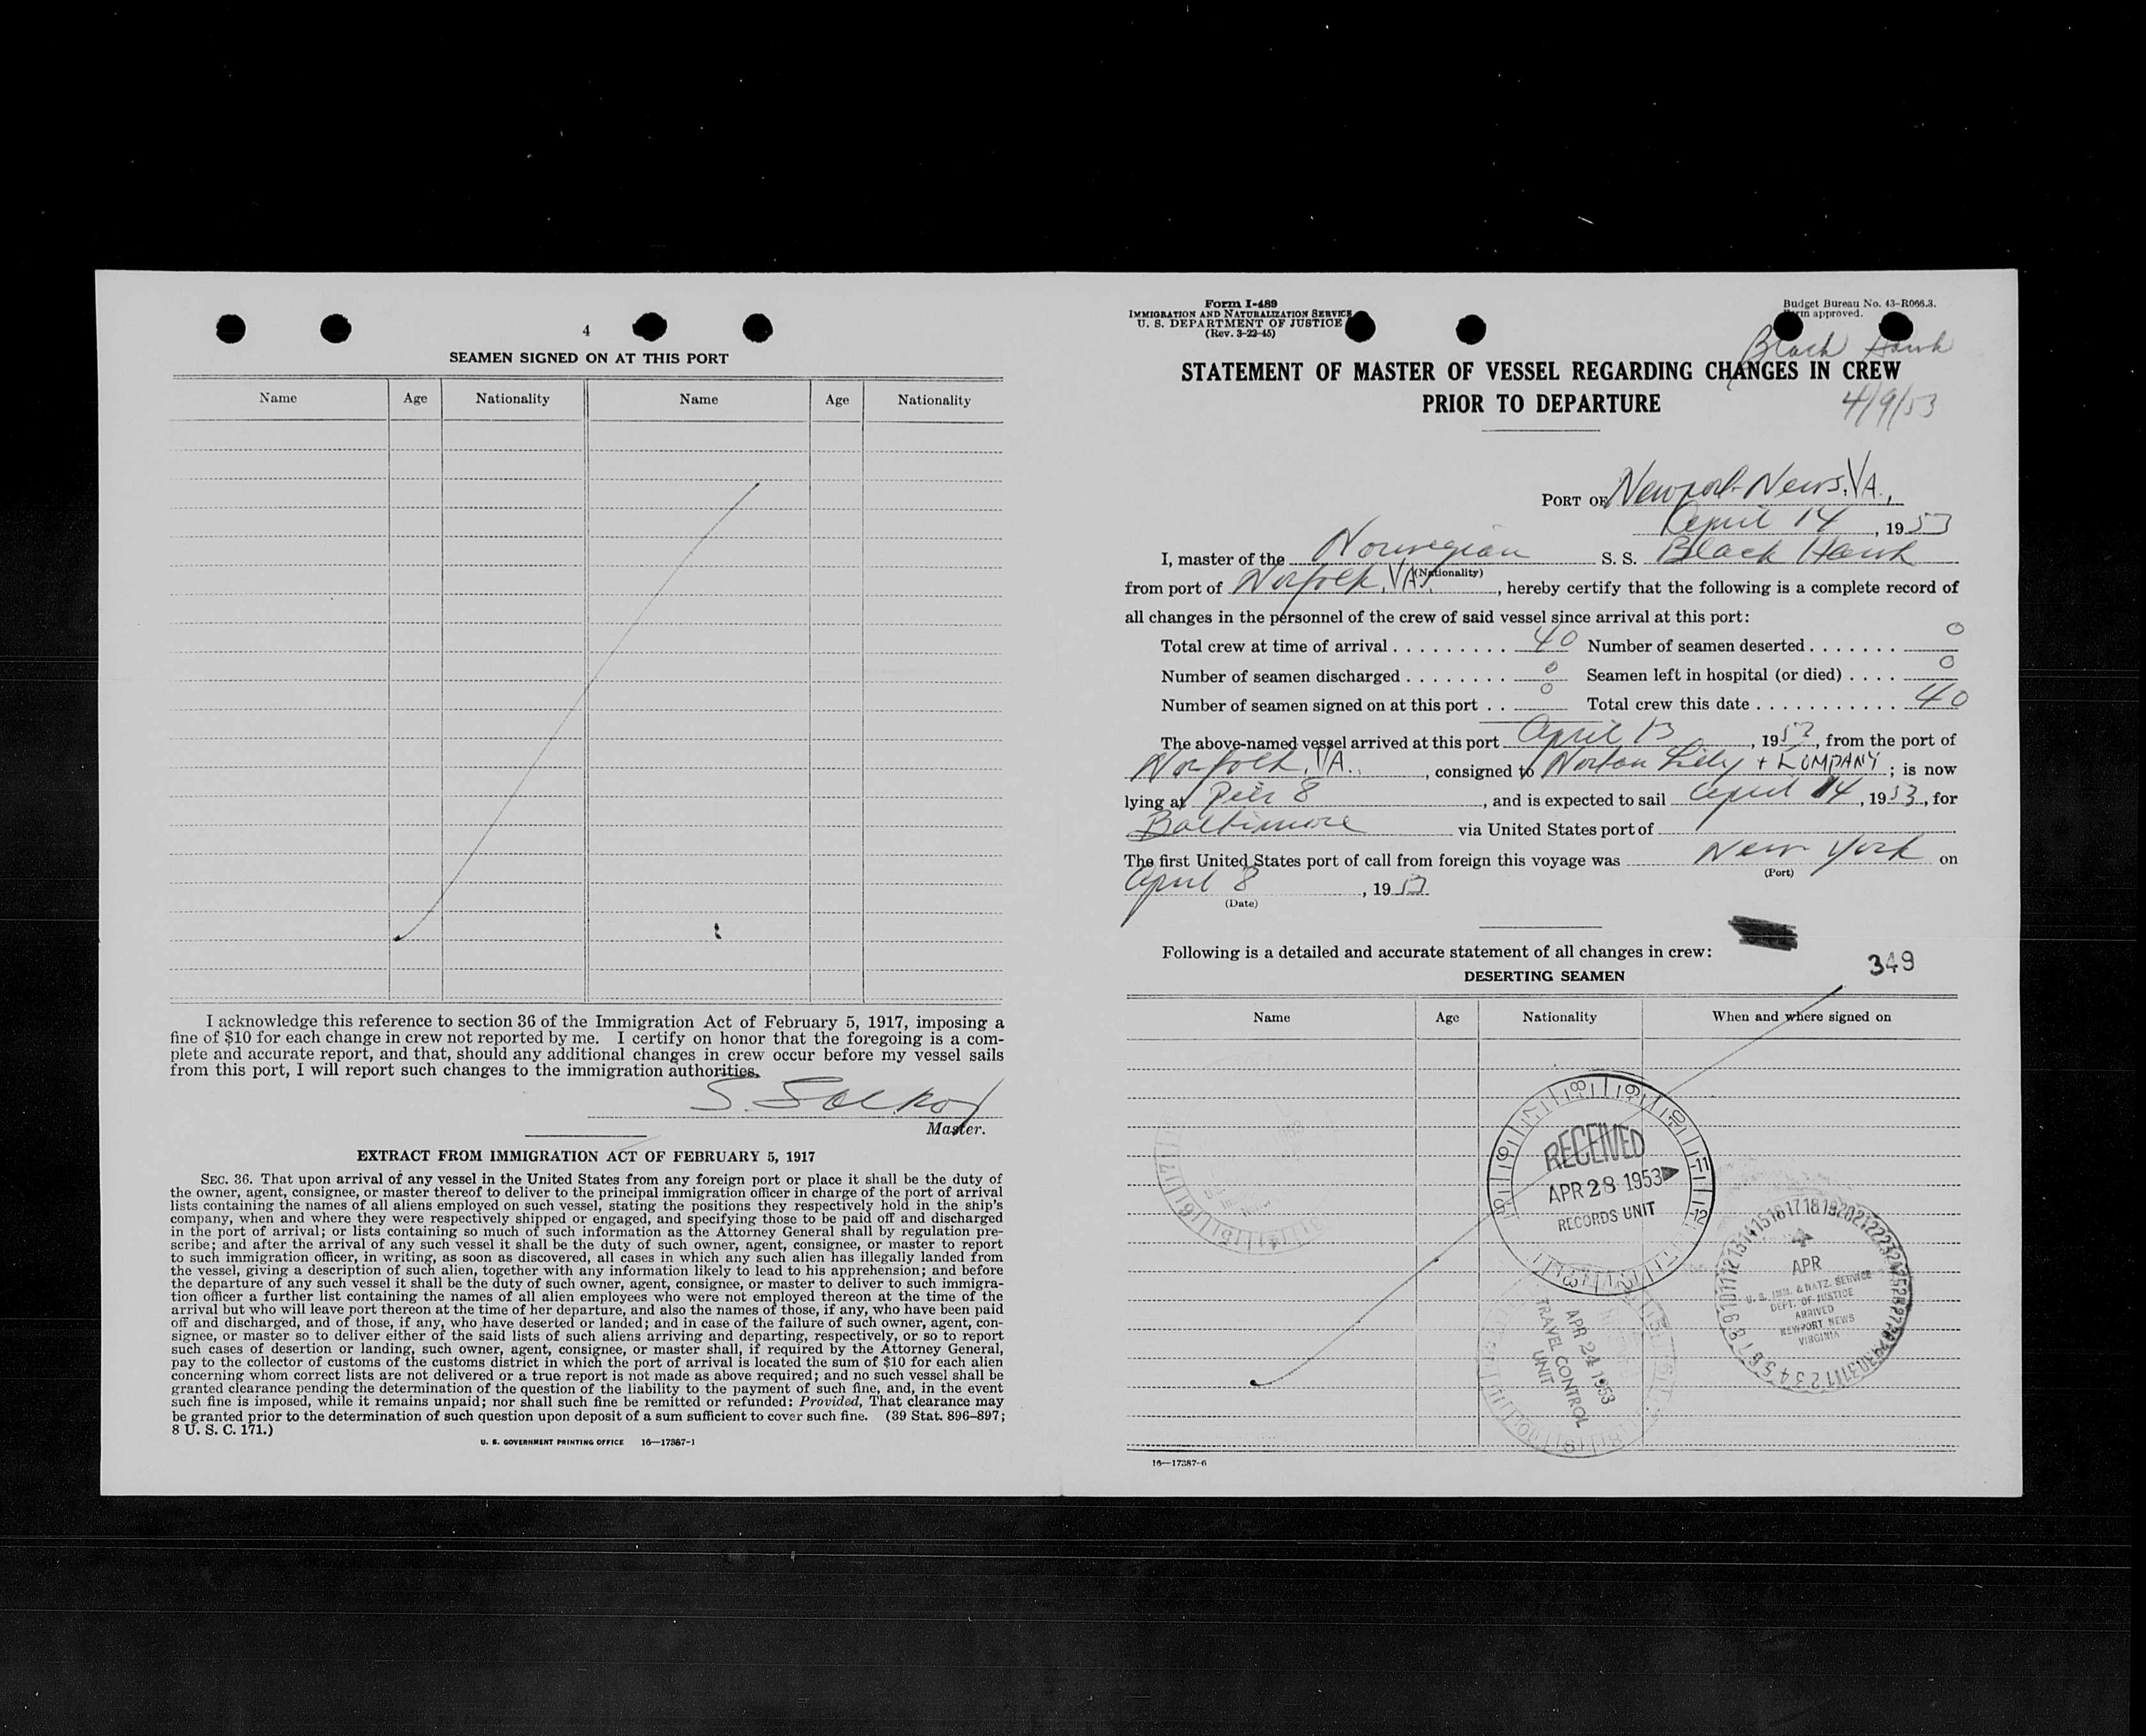 4
SEAMEN SIGNED ON AT THIS PORT
Name Age Nationality Name Age Nationality
I acknowledge this reference to section 36 of the Immigration Act of February 5, 1917, imposing a
fine of $10 for each change in crew not reported by me. I certify on honor that the foregoing is a com-
plete and accurate report, and that, should any additional changes in crew occur before my vessel sails
from this port, I will report such changes to the immigration authorities.
S.
Master.
EXTRACT FROM IMMIGRATION ACT OF FEBRUARY 5, 1917
SEC. 36. That upon arrival of any vessel in the United States from any foreign port or place it shall be the duty of
the owner, agent, consignee, or master thereof to deliver to the principal immigration officer in charge of the port of arrival
lists containing the names of all aliens employed on such vessel, stating the positions they respectively hold in the ship's
company, when and where they were respectively shipped or engaged, and specifying those to be paid off and discharged
in the port of arrival; or lists containing so much of such information as the Attorney General shall by regulation pre-
scribe; and after the arrival of any such vessel it shall be the duty of such owner, agent, consignee, or master to report
to such immigration officer, in writing, as soon as discovered, all cases in which any such alien has illegally landed from
the vessel, giving a description of such alien, together with any information likely to lead to his apprehension; and before
the departure of any such vessel it shall be the duty of such owner, agent, consignee, or master to deliver to such immigra-
tion officer a further list containing the names of all alien employees who were not employed thereon at the time of the
arrival but who will leave port thereon at the time of her departure, and also the names of those, if any, who have been paid
off and discharged, and of those, if any, who have deserted or landed; and in case of the failure of such owner, agent, con-
signee, or master so to deliver either of the said lists of such aliens arriving and departing, respectively, or so to report
such cases of desertion or landing, such owner, agent, consignee, or master shall, if required by the Attorney General,
pay to the collector of customs of the customs district in which the port of arrival is located the sum of $10 for each alien
concerning whom correct lists are not delivered or a true report is not made as above required; and no such vessel shall be
granted clearance pending the determination of the question of the liability to the payment of such fine, and, in the event
such fine is imposed, while it remains unpaid; nor shall such fine be remitted or refunded: Provided, That clearance may
be granted prior to the determination of such question upon deposit of a sum sufficient to cover such fine. (39 Stat. 896–897;
8 U. S. C. 171.)
U. S. GOVERNMENT PRINTING OFFICE 16—17387-1
Form I-489
IMMIGRATION AND NATURALIZATION SERVICE
U. S. DEPARTMENT OF JUSTICE
(Rev. 3-22-45)
Budget Bureau No. 43-R066.3.
Form approved.
Black Hawk
STATEMENT OF MASTER OF VESSEL REGARDING CHANGES IN CREW
PRIOR TO DEPARTURE
4/9/53
PORT OF Newport News, VA.,
April 14, 1953
I, master of the Norwegian S. S. Black Hawk
(Nationality)
from port of Norfolk, VA., hereby certify that the following is a complete record of
all changes in the personnel of the crew of said vessel since arrival at this port:
Total crew at time of arrival 40 Number of seamen deserted 0
Number of seamen discharged 0 Seamen left in hospital (or died) 0
Number of seamen signed on at this port 0 Total crew this date 40
The above-named vessel arrived at this port April 13, 1953, from the port of
Norfolk, VA., consigned to Norton Lilly + COMPANY; is now
lying at Pier 8, and is expected to sail April 14, 1953, for
Baltimore via United States port of
The first United States port of call from foreign this voyage was New York on
(Port)
April 8, 1953
(Date)
Following is a detailed and accurate statement of all changes in crew:
349
DESERTING SEAMEN
Name Age Nationality When and where signed on
RECEIVED
APR 28 1953
RECORDS UNIT
APR
U. S. IMM. & NATZ. SERVICE
DEPT. OF JUSTICE
ARRIVED
NEWPORT NEWS
VIRGINIA
APR 24 1953
TRAVEL CONTROL
UNIT
16—17387-6